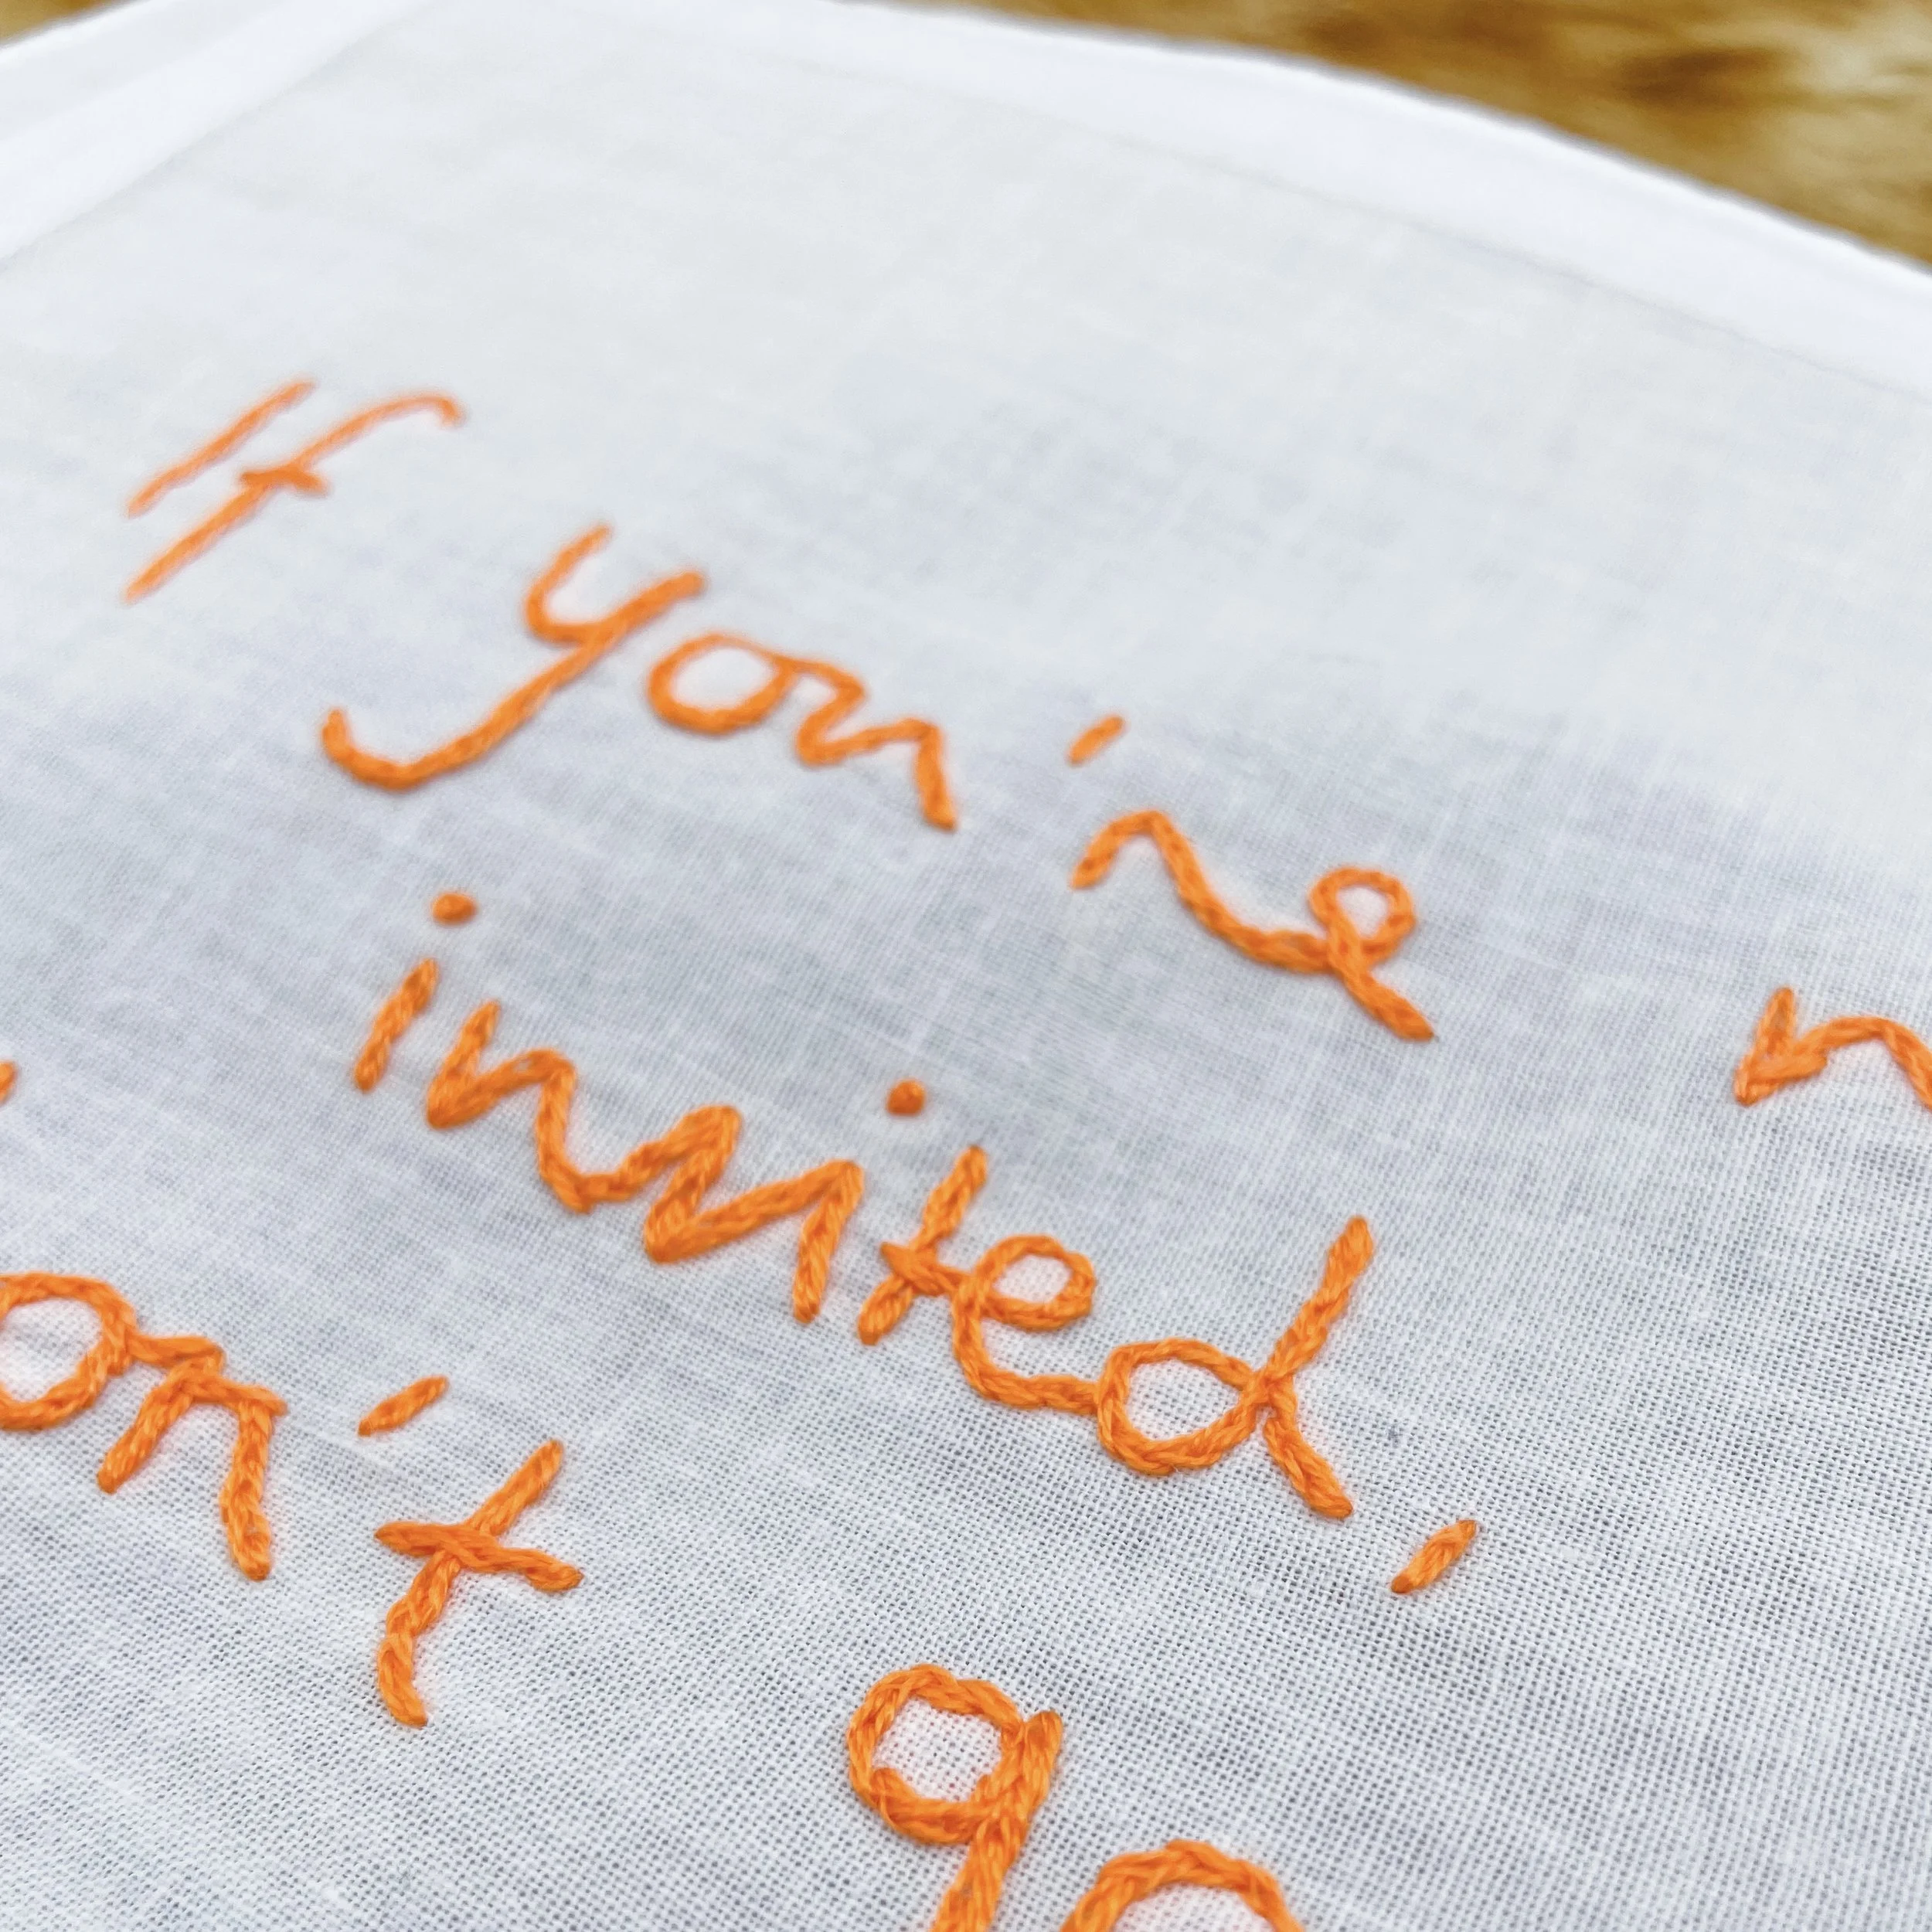 If you're n
invited,
on't go